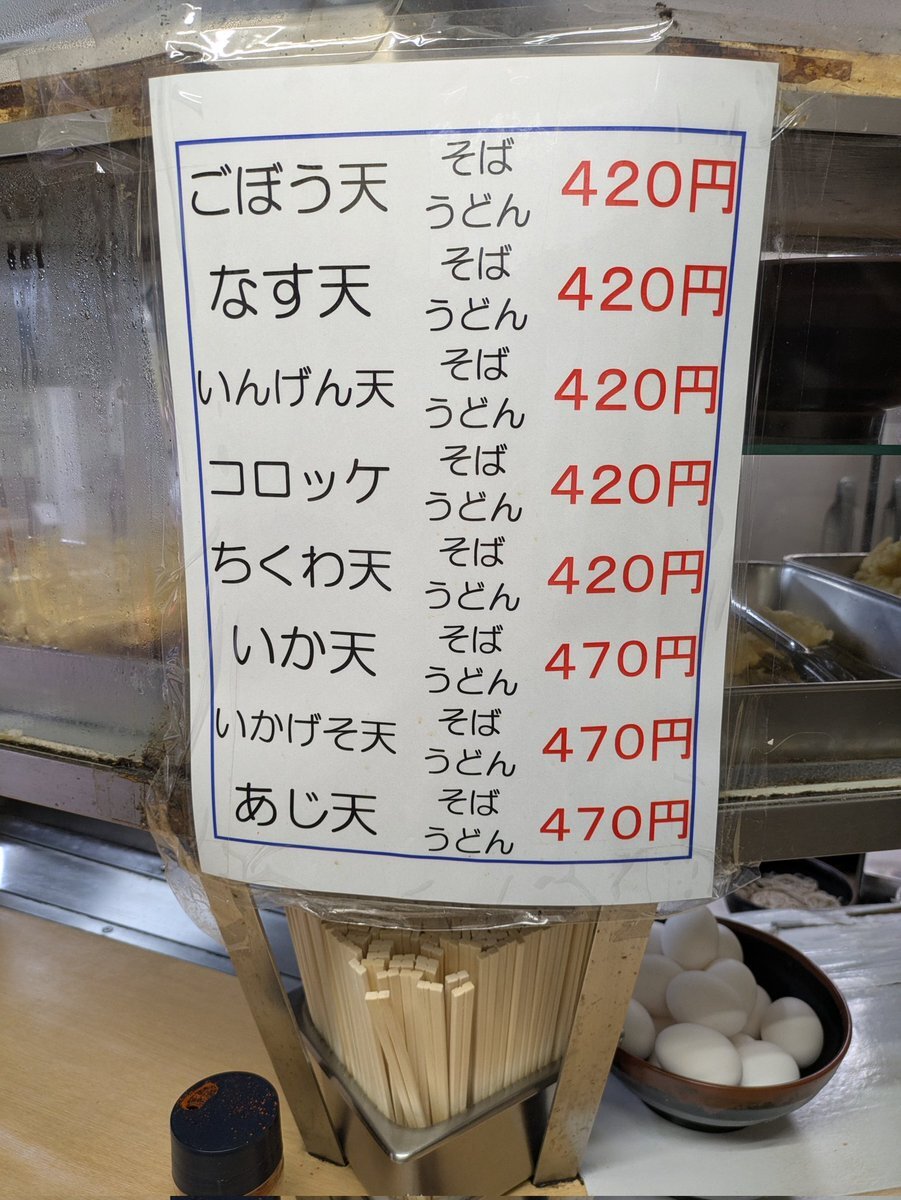 ごぼう天 そば うどん 420円
なす天 そば うどん 420円
いんげん天 そば うどん 420円
コロッケ そば うどん 420円
ちくわ天 そば うどん 420円
いか天 そば うどん 470円
いかげそ天 そば うどん 470円
あじ天 そば うどん 470円